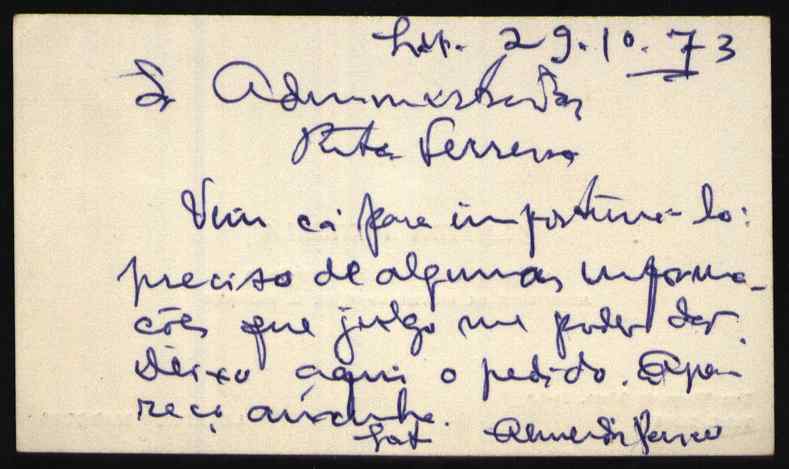 Lx. 29.10.73
Sr Administrador
Rita Ferreira
Vim cá para importuná-lo:
preciso de algumas informa-
ções que julgo me poder dar.
Deixo aqui o pedido. Apa-
reço amanhã.
Almeida